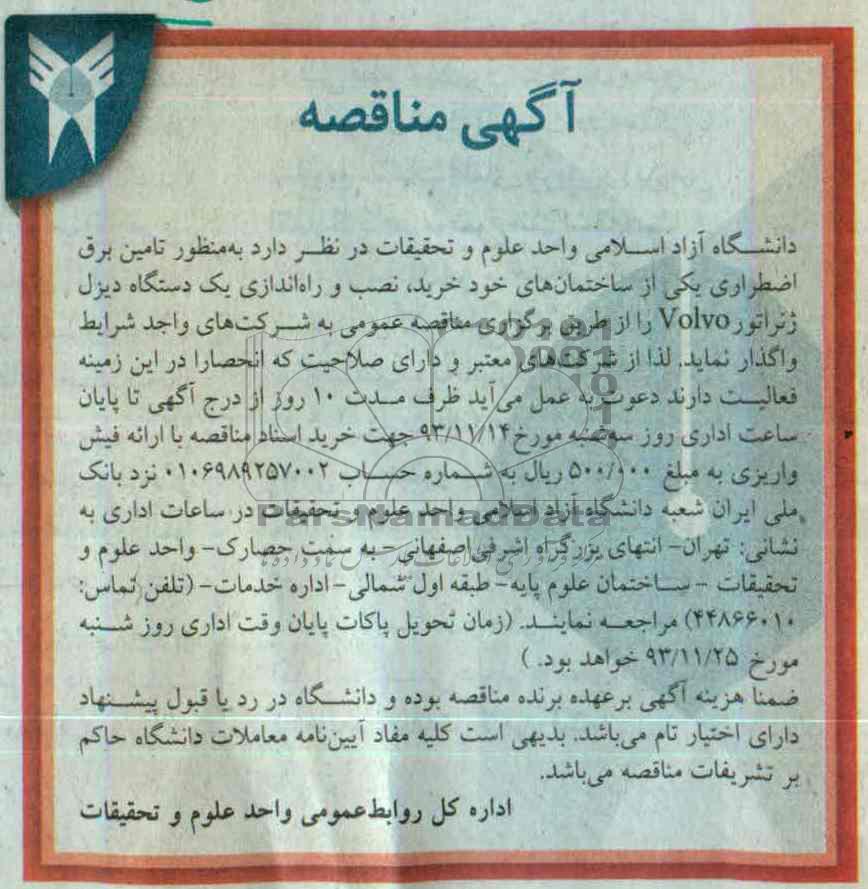 آگهی مناقصه
دانشگاه آزاد اسلامی واحد علوم و تحقیقات در نظر دارد به‌منظور تامین برق
اضطراری یکی از ساختمان‌های خود خرید، نصب و راه‌اندازی یک دستگاه دیزل
ژنراتور Volvo را از طریق برگزاری مناقصه عمومی به شرکت‌های واجد شرایط
واگذار نماید. لذا از شرکت‌های معتبر و دارای صلاحیت که انحصارا در این زمینه
فعالیت دارند دعوت به عمل می‌آید ظرف مدت ۱۰ روز از درج آگهی تا پایان
ساعت اداری روز سه‌شنبه مورخ ۹۳/۱۱/۱۴ جهت خرید اسناد مناقصه با ارائه فیش
واریزی به مبلغ ۵۰۰/۰۰۰ ریال به شماره حساب ۰۱۰۶۹۸۹۲۵۷۰۰۲ نزد بانک
ملی ایران شعبه دانشگاه آزاد اسلامی واحد علوم و تحقیقات در ساعات اداری به
نشانی: تهران- انتهای بزرگراه اشرفی اصفهانی- به سمت حصارک- واحد علوم و
تحقیقات - ساختمان علوم پایه- طبقه اول شمالی- اداره خدمات- (تلفن تماس:
۴۴۸۶۶۰۱۰) مراجعه نمایند. (زمان تحویل پاکات پایان وقت اداری روز شنبه
مورخ ۹۳/۱۱/۲۵ خواهد بود. )
ضمنا هزینه آگهی برعهده برنده مناقصه بوده و دانشگاه در رد یا قبول پیشنهاد
دارای اختیار تام می‌باشد. بدیهی است کلیه مفاد آیین‌نامه معاملات دانشگاه حاکم
بر تشریفات مناقصه می‌باشد.
اداره کل روابط‌عمومی واحد علوم و تحقیقات
ParsNamadData